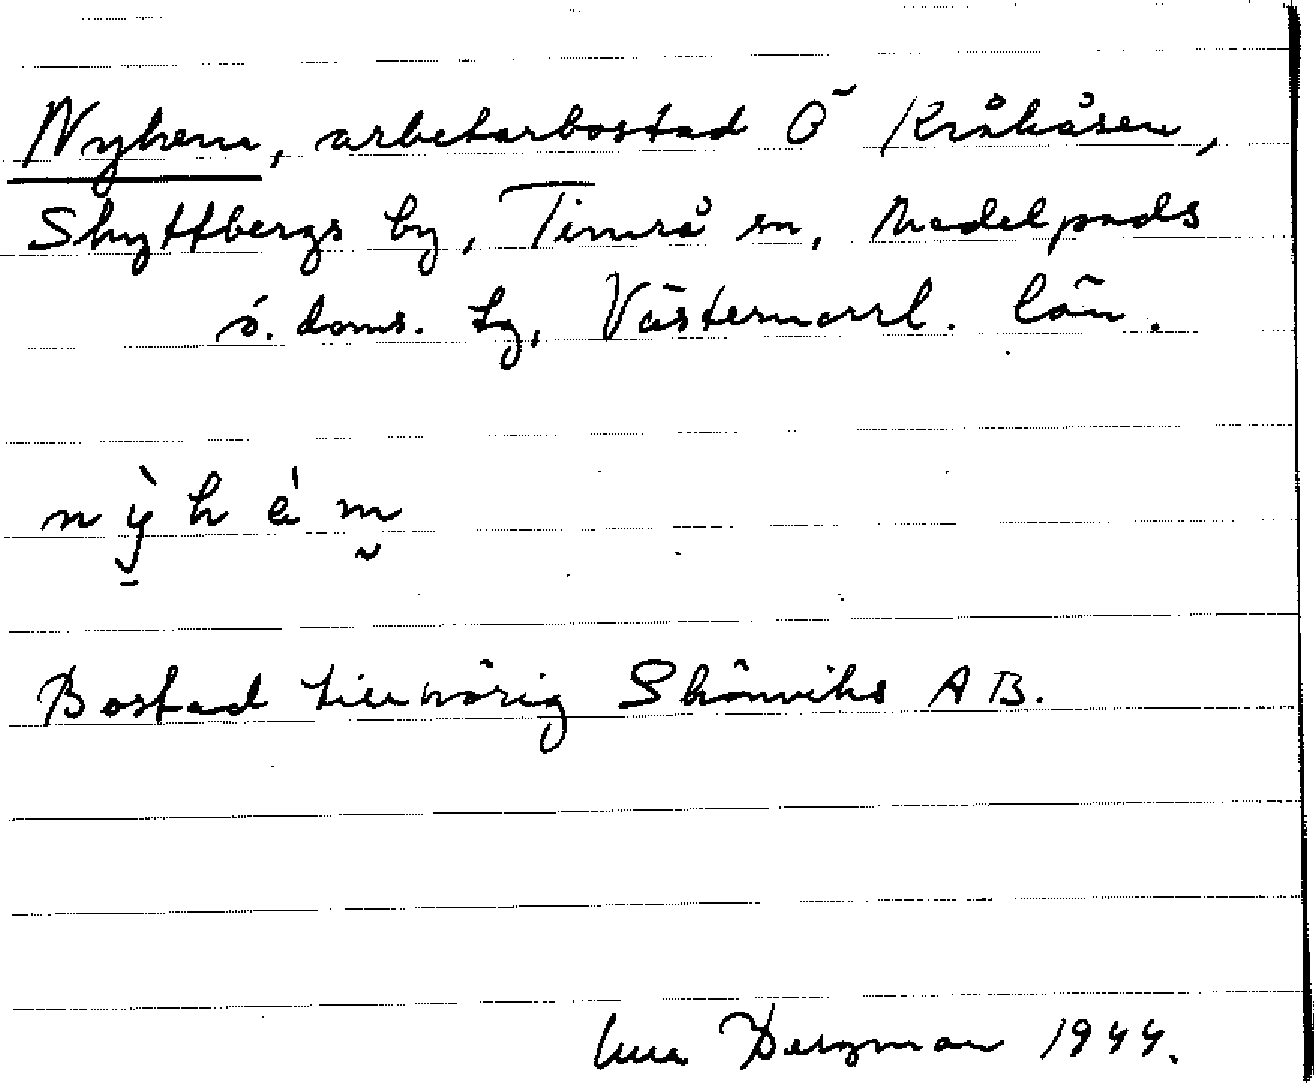 Nyhem, arbetarbostad Ö Kråkåsen,
Skyttbergs by, Timrå sn, Medelpads
ö. doms. tg, Västernorrl. län.
nỳhém
Bostad tillhörig Skönviks AB.
Bergman 1944.